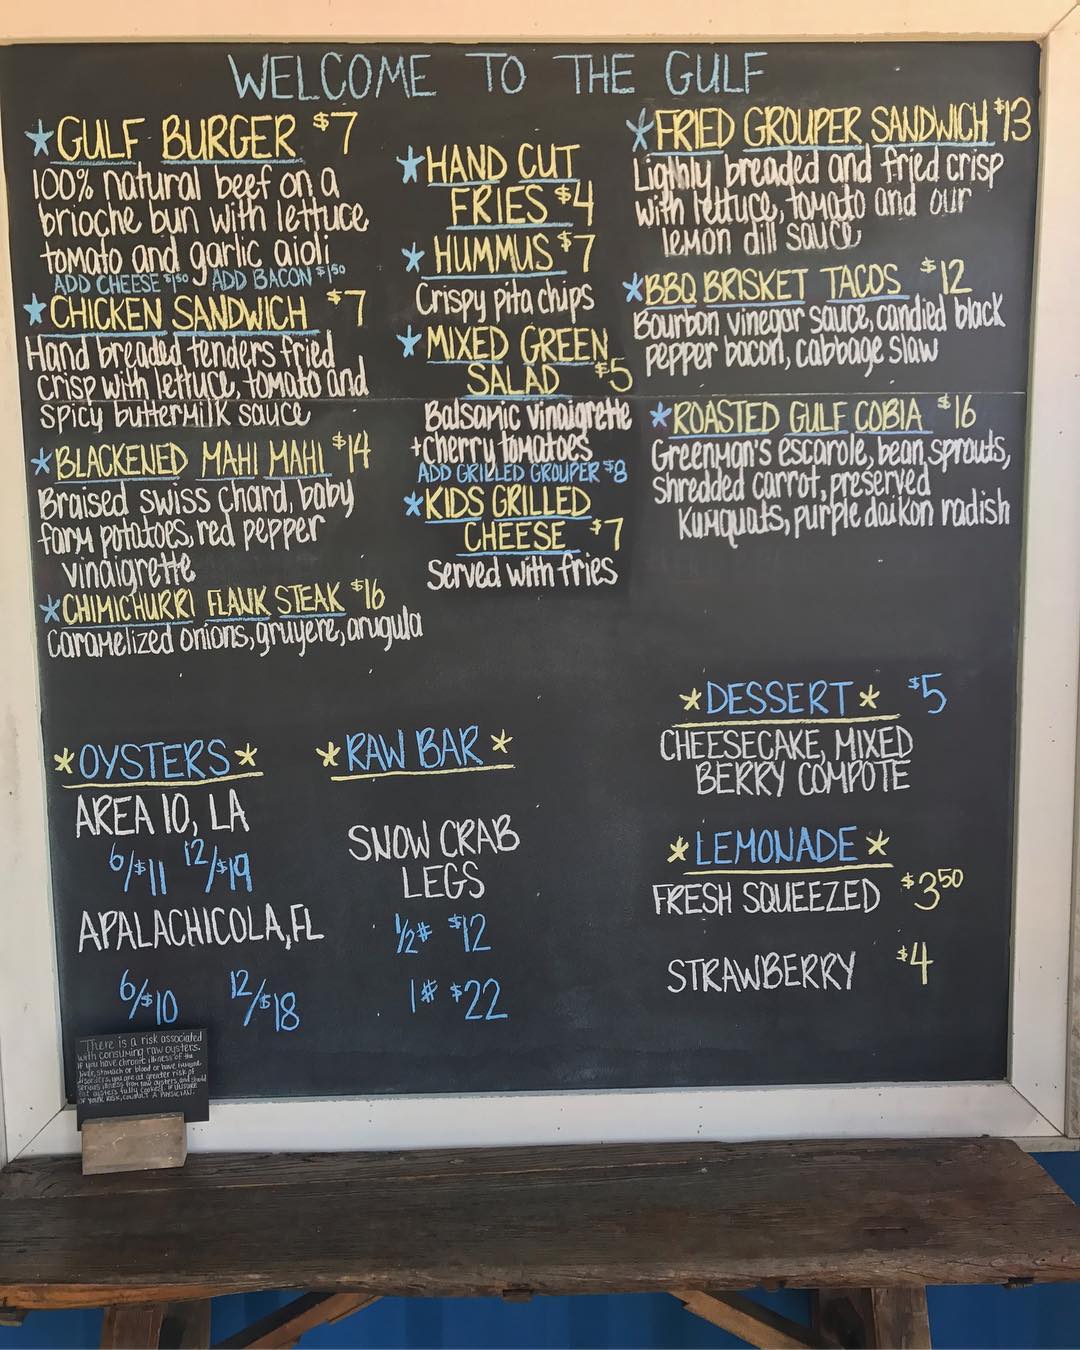 WELCOME TO THE GULF
★GULF BURGER $7
100% natural beef on a
brioche bun with lettuce
tomato and garlic aioli
ADD CHEESE $1.50 ADD BACON $1.50
★CHICKEN SANDWICH $7
Hand breaded tenders fried
crisp with lettuce, tomato and
spicy buttermilk sauce
★BLACKENED MAHI MAHI $14
Braised swiss chard, baby
farm potatoes, red pepper
vinaigrette
★CHIMICHURRI FLANK STEAK $16
Caramelized onions, gruyere, arugula
★HAND CUT
FRIES $4
★HUMMUS $7
Crispy pita chips
★MIXED GREEN
SALAD $5
Balsamic vinaigrette
+cherry tomatoes
ADD GRILLED GROUPER $8
★KIDS GRILLED
CHEESE $7
served with fries
★FRIED GROUPER SANDWICH $13
Lighly breaded and fried crisp
with lettuce, tomato and our
lemon dill sauce
★BBQ BRISKET TACOS $12
Bourbon vinegar sauce, candied black
pepper bacon, cabbage slaw
★ROASTED GULF COBIA $16
Greenman's escarole, bean sprouts,
shredded carrot, preserved
Kumquats, purple daikon radish
★OYSTERS★
AREA 10, LA
6/$11 12/$19
APALACHICOLA, FL
6/$10 12/$18
★RAW BAR★
SNOW CRAB
LEGS
1/2# $12
1# $22
★DESSERT★ $5
CHEESECAKE, MIXED
BERRY COMPOTE
★LEMONADE★
FRESH SQUEEZED $3.50
STRAWBERRY $4
There is a risk associated
with consuming raw oysters.
If you have chronic illness of the
liver, stomach or blood or have immune
disorders, you are at greater risk of
serious illness from raw oysters, and should
eat oysters fully cooked. If unsure
of your risk, consult a physician.